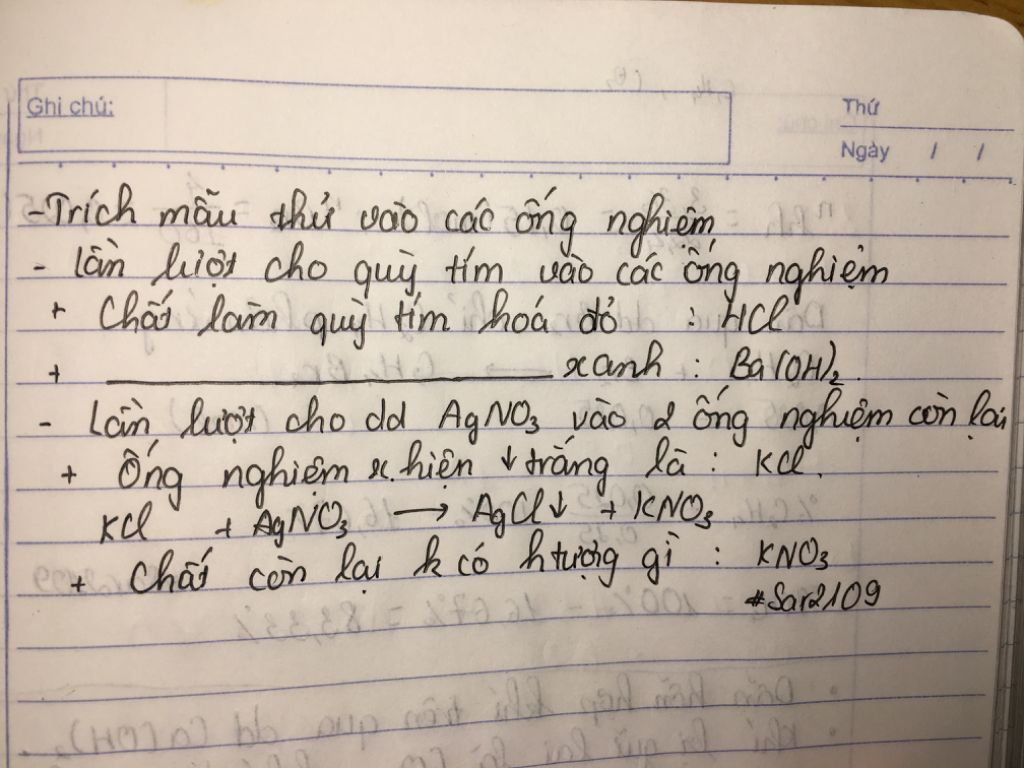 Ghi chú:
Thứ
Ngày / /
- Trích mẫu thử vào các ống nghiệm
- Lần lượt cho quỳ tím vào các ống nghiệm
+ Chất làm quỳ tím hoá đỏ : HCl
+ ____________________ xanh : Ba(OH)₂.
- Lần lượt cho dd AgNO₃ vào 2 ống nghiệm còn lại
+ Ống nghiệm x. hiện ↓ trắng là : KCl.
KCl + AgNO₃ → AgCl↓ + KNO₃
+ Chất còn lại k có htượng gì : KNO₃
#Sar2109